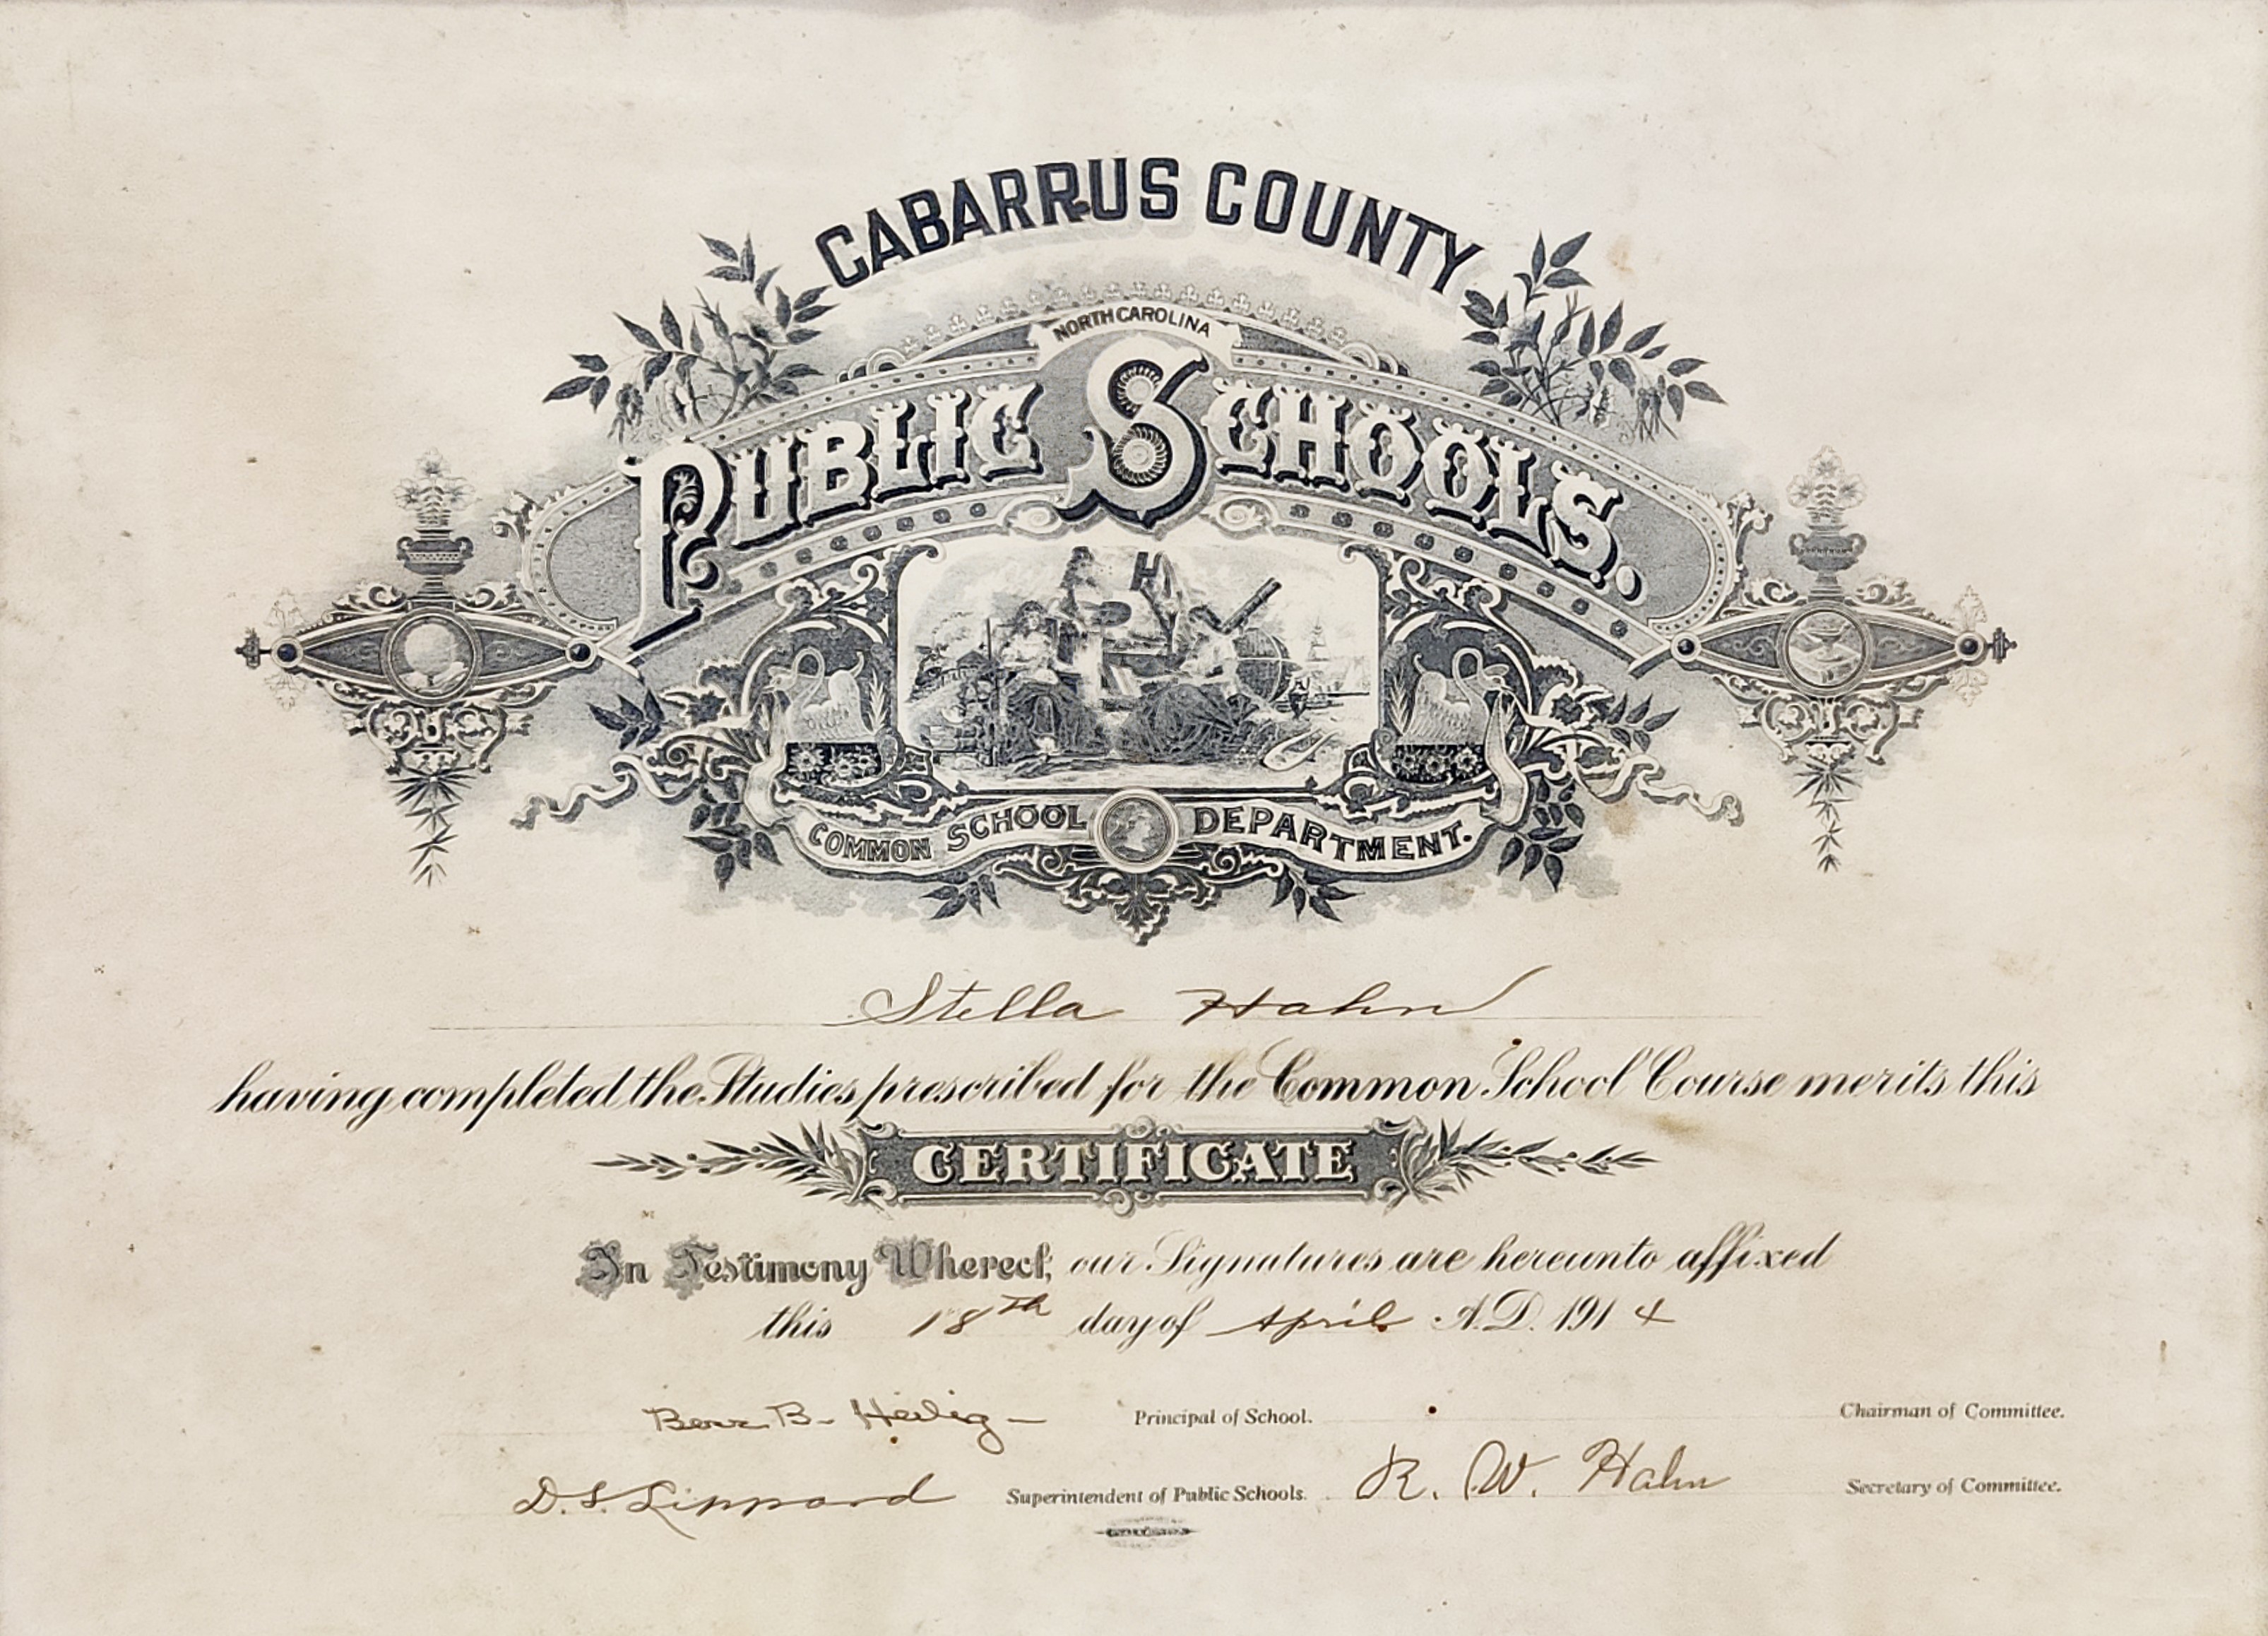 CABARRUS COUNTY
NORTH CAROLINA
PUBLIC SCHOOLS.
COMMON SCHOOL DEPARTMENT.
Stella Hahn
having completed the Studies prescribed for the Common School Course merits this
CERTIFICATE
In Testimony Whereof, our Signatures are hereunto affixed
this 18th day of April A.D. 1914
B. Heilig Principal of School. Chairman of Committee.
D. S. Lippard Superintendent of Public Schools. R. W. Hahn Secretary of Committee.